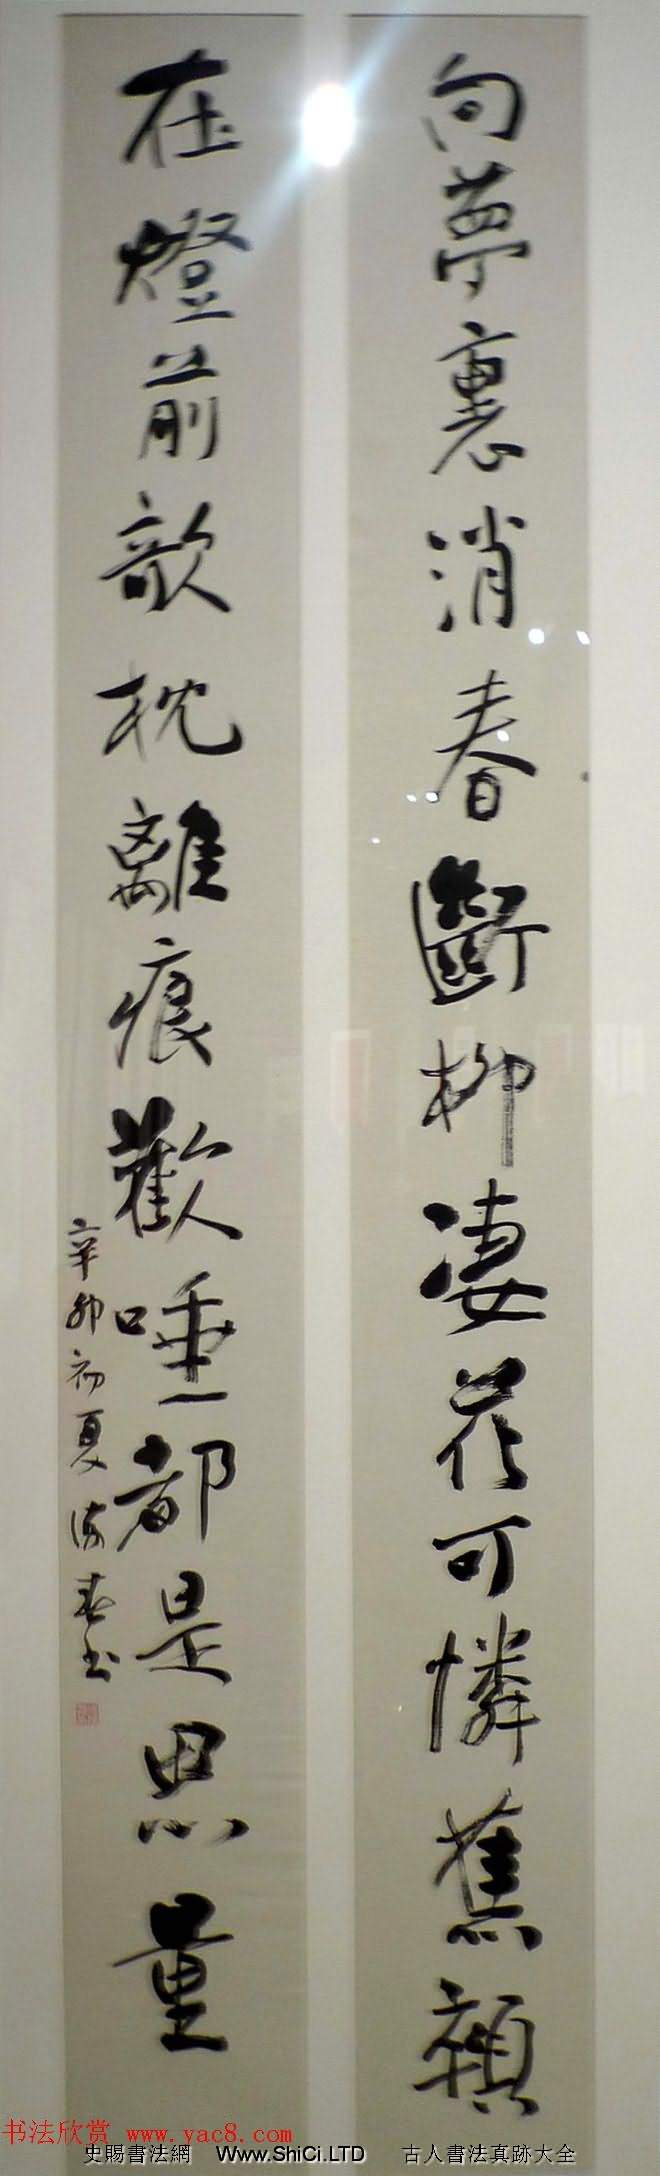 向夢裏消春斷柳凄花可憐蕉顇
在燈前欹枕離痕歡唾都是思量
辛卯初夏
书法欣赏 www.yac8.com
史賜書法網 Www.ShiCi.LTD 古人書法真跡大全